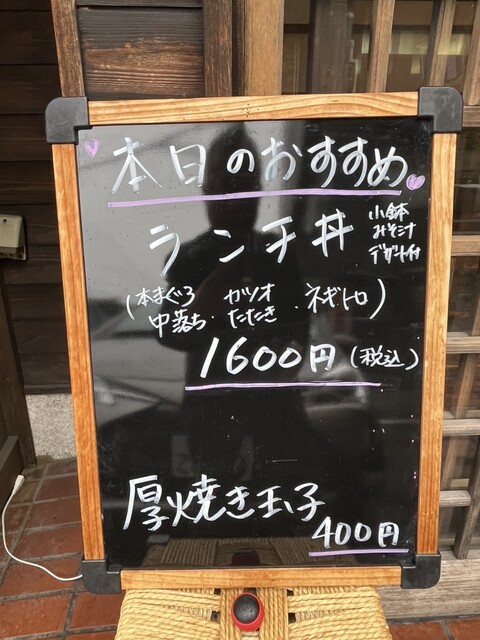 本日のおすすめ
ランチ丼
小鉢
みそ汁
デザート付
(本まぐろ中落ち・カツオたたき・ネギトロ)
1600円(税込)
厚焼き玉子
400円